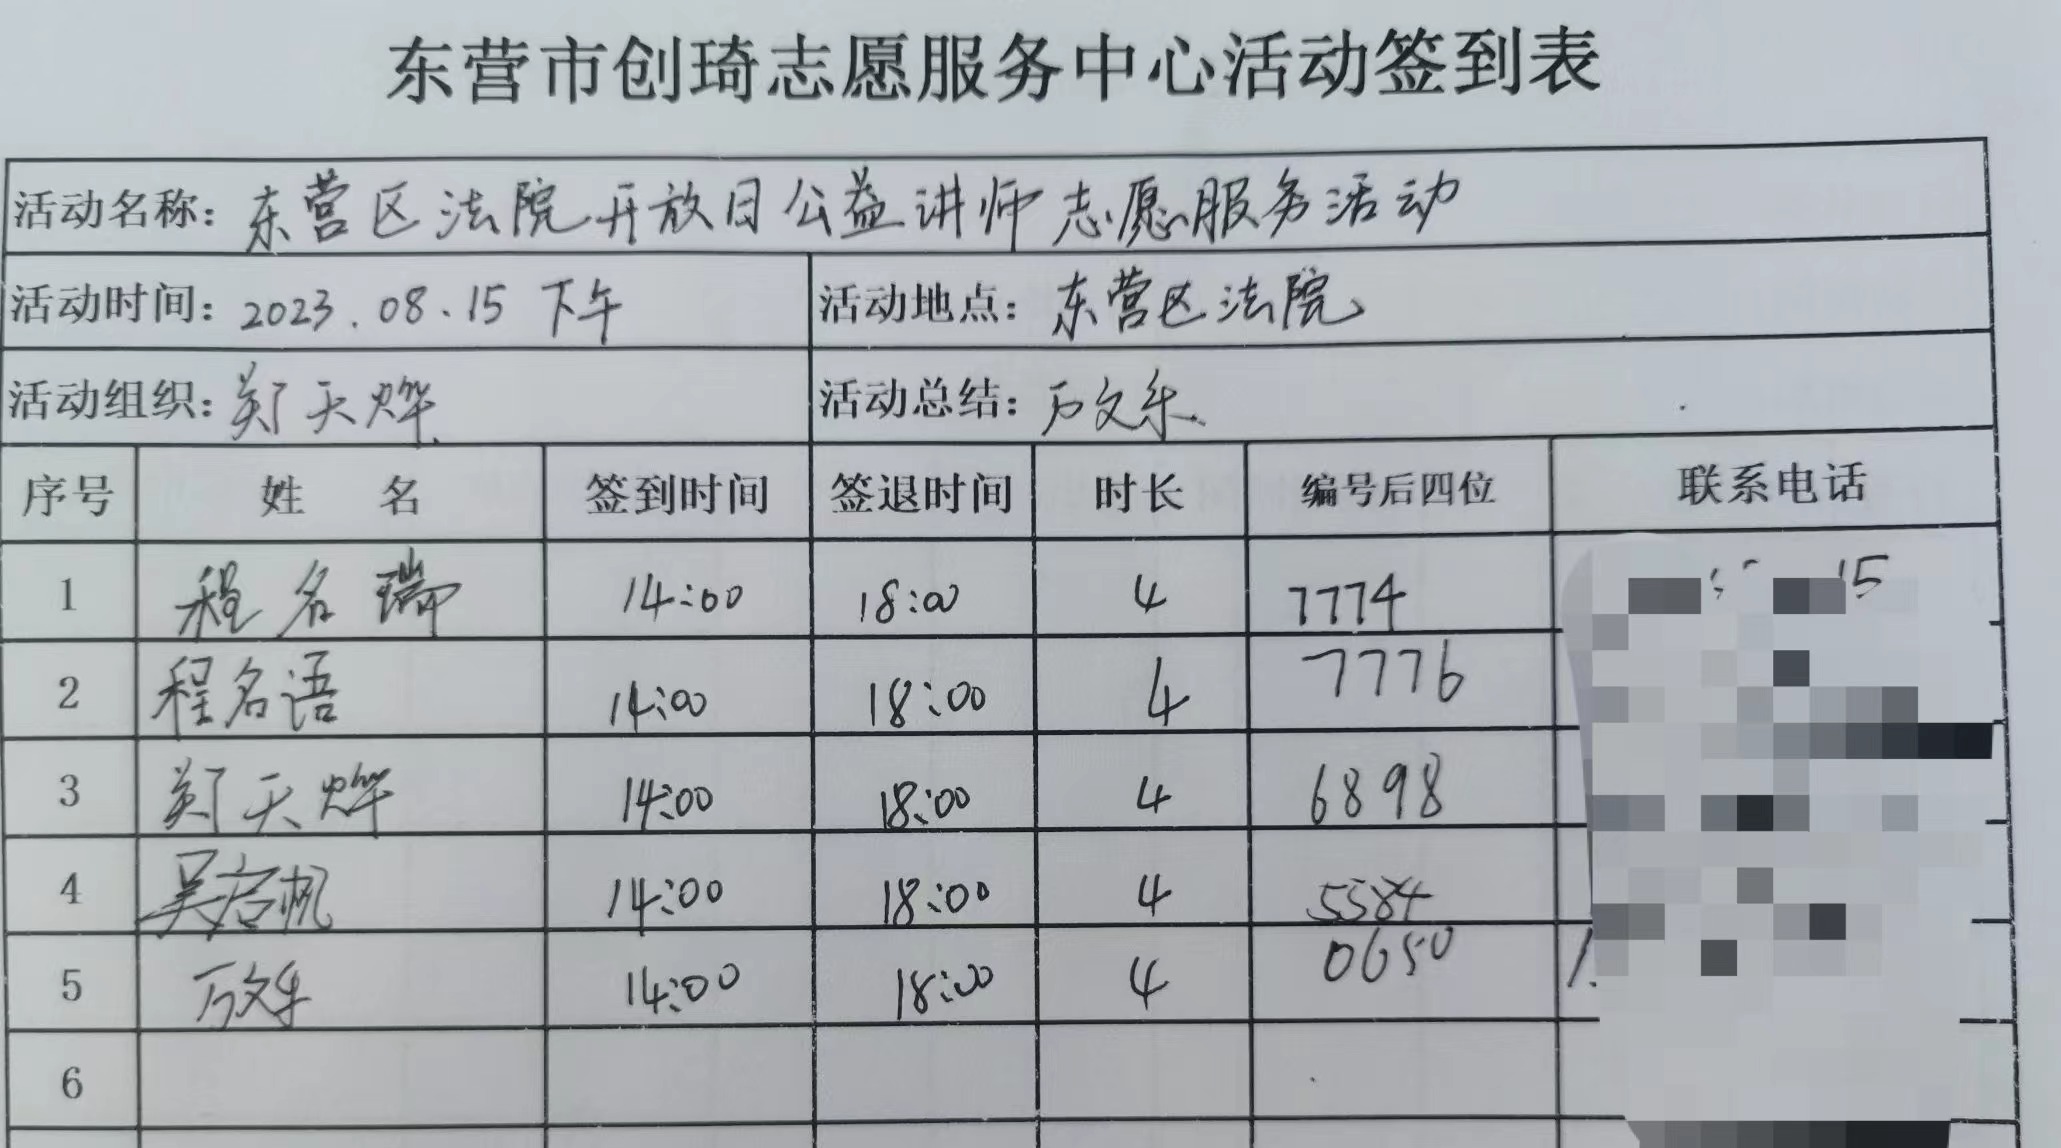 东营市创琦志愿服务中心活动签到表
活动名称：东营区法院开放日公益讲师志愿服务活动
活动时间：2023.08.15 下午 活动地点：东营区法院
活动组织：郑天烨 活动总结：万文乐
序号 姓 名 签到时间 签退时间 时长 编号后四位 联系电话
1 程名瑞 14:00 18:00 4 7774 15
2 程名语 14:00 18:00 4 7776
3 郑天烨 14:00 18:00 4 6898
4 吴启帆 14:00 18:00 4 5584
5 万文乐 14:00 18:00 4 0650 1
6